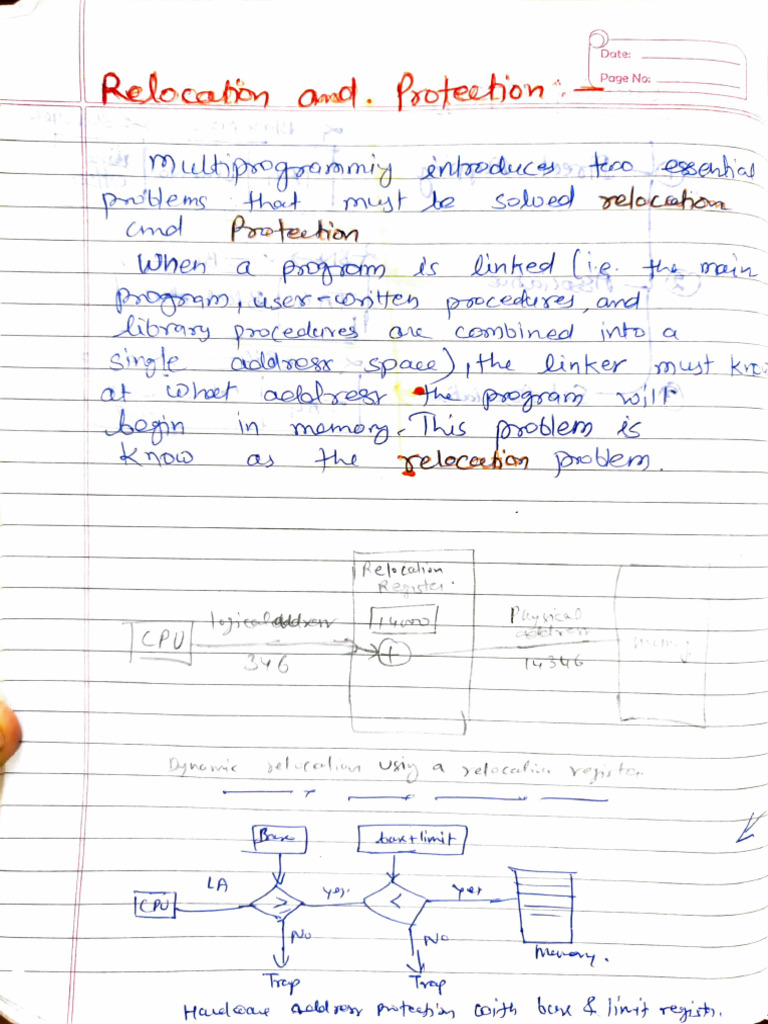 Date:
Page No:
Relocation and. Protection :-
Multiprogrammiy introduces two essential
problems that must be solved relocation
and Protection
When a program is linked (i.e. the main
program, user-written procedures, and
library procedures are combined into a
single address space), the linker must kno
at what address the program will
begin in memory. This problem is
know as the relocation problem.
Relocation
Register.
logical address
14000
Physical
address
CPU
+
memory
346
14346
Dynamic relocation using a relocation register
Base
base+limit
LA
yes
yes
CPU
≥
<
No
No
Memory.
Trap
Trap
Hardware address protection with base & limit registr.